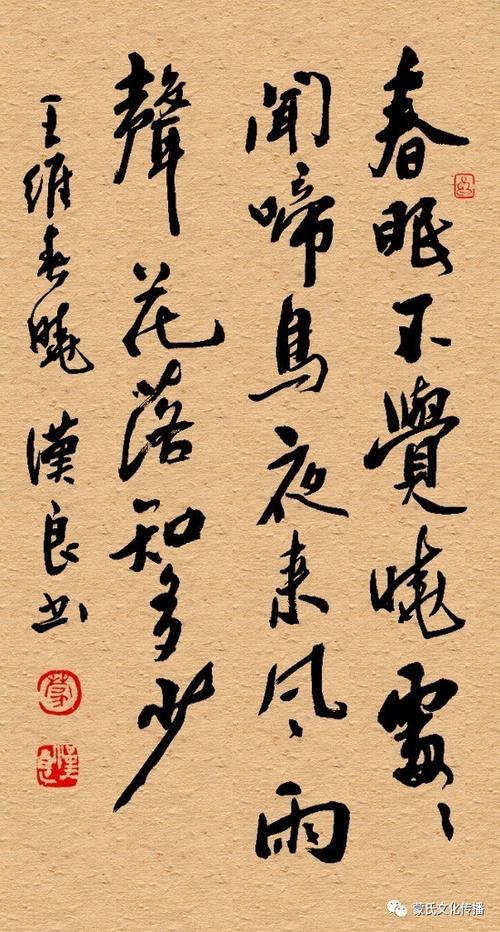 春眠不覺曉處々
聞啼鳥夜来风雨
聲花落知多少
王維春曉 漢良书
蒙
漢良
蒙氏文化传播